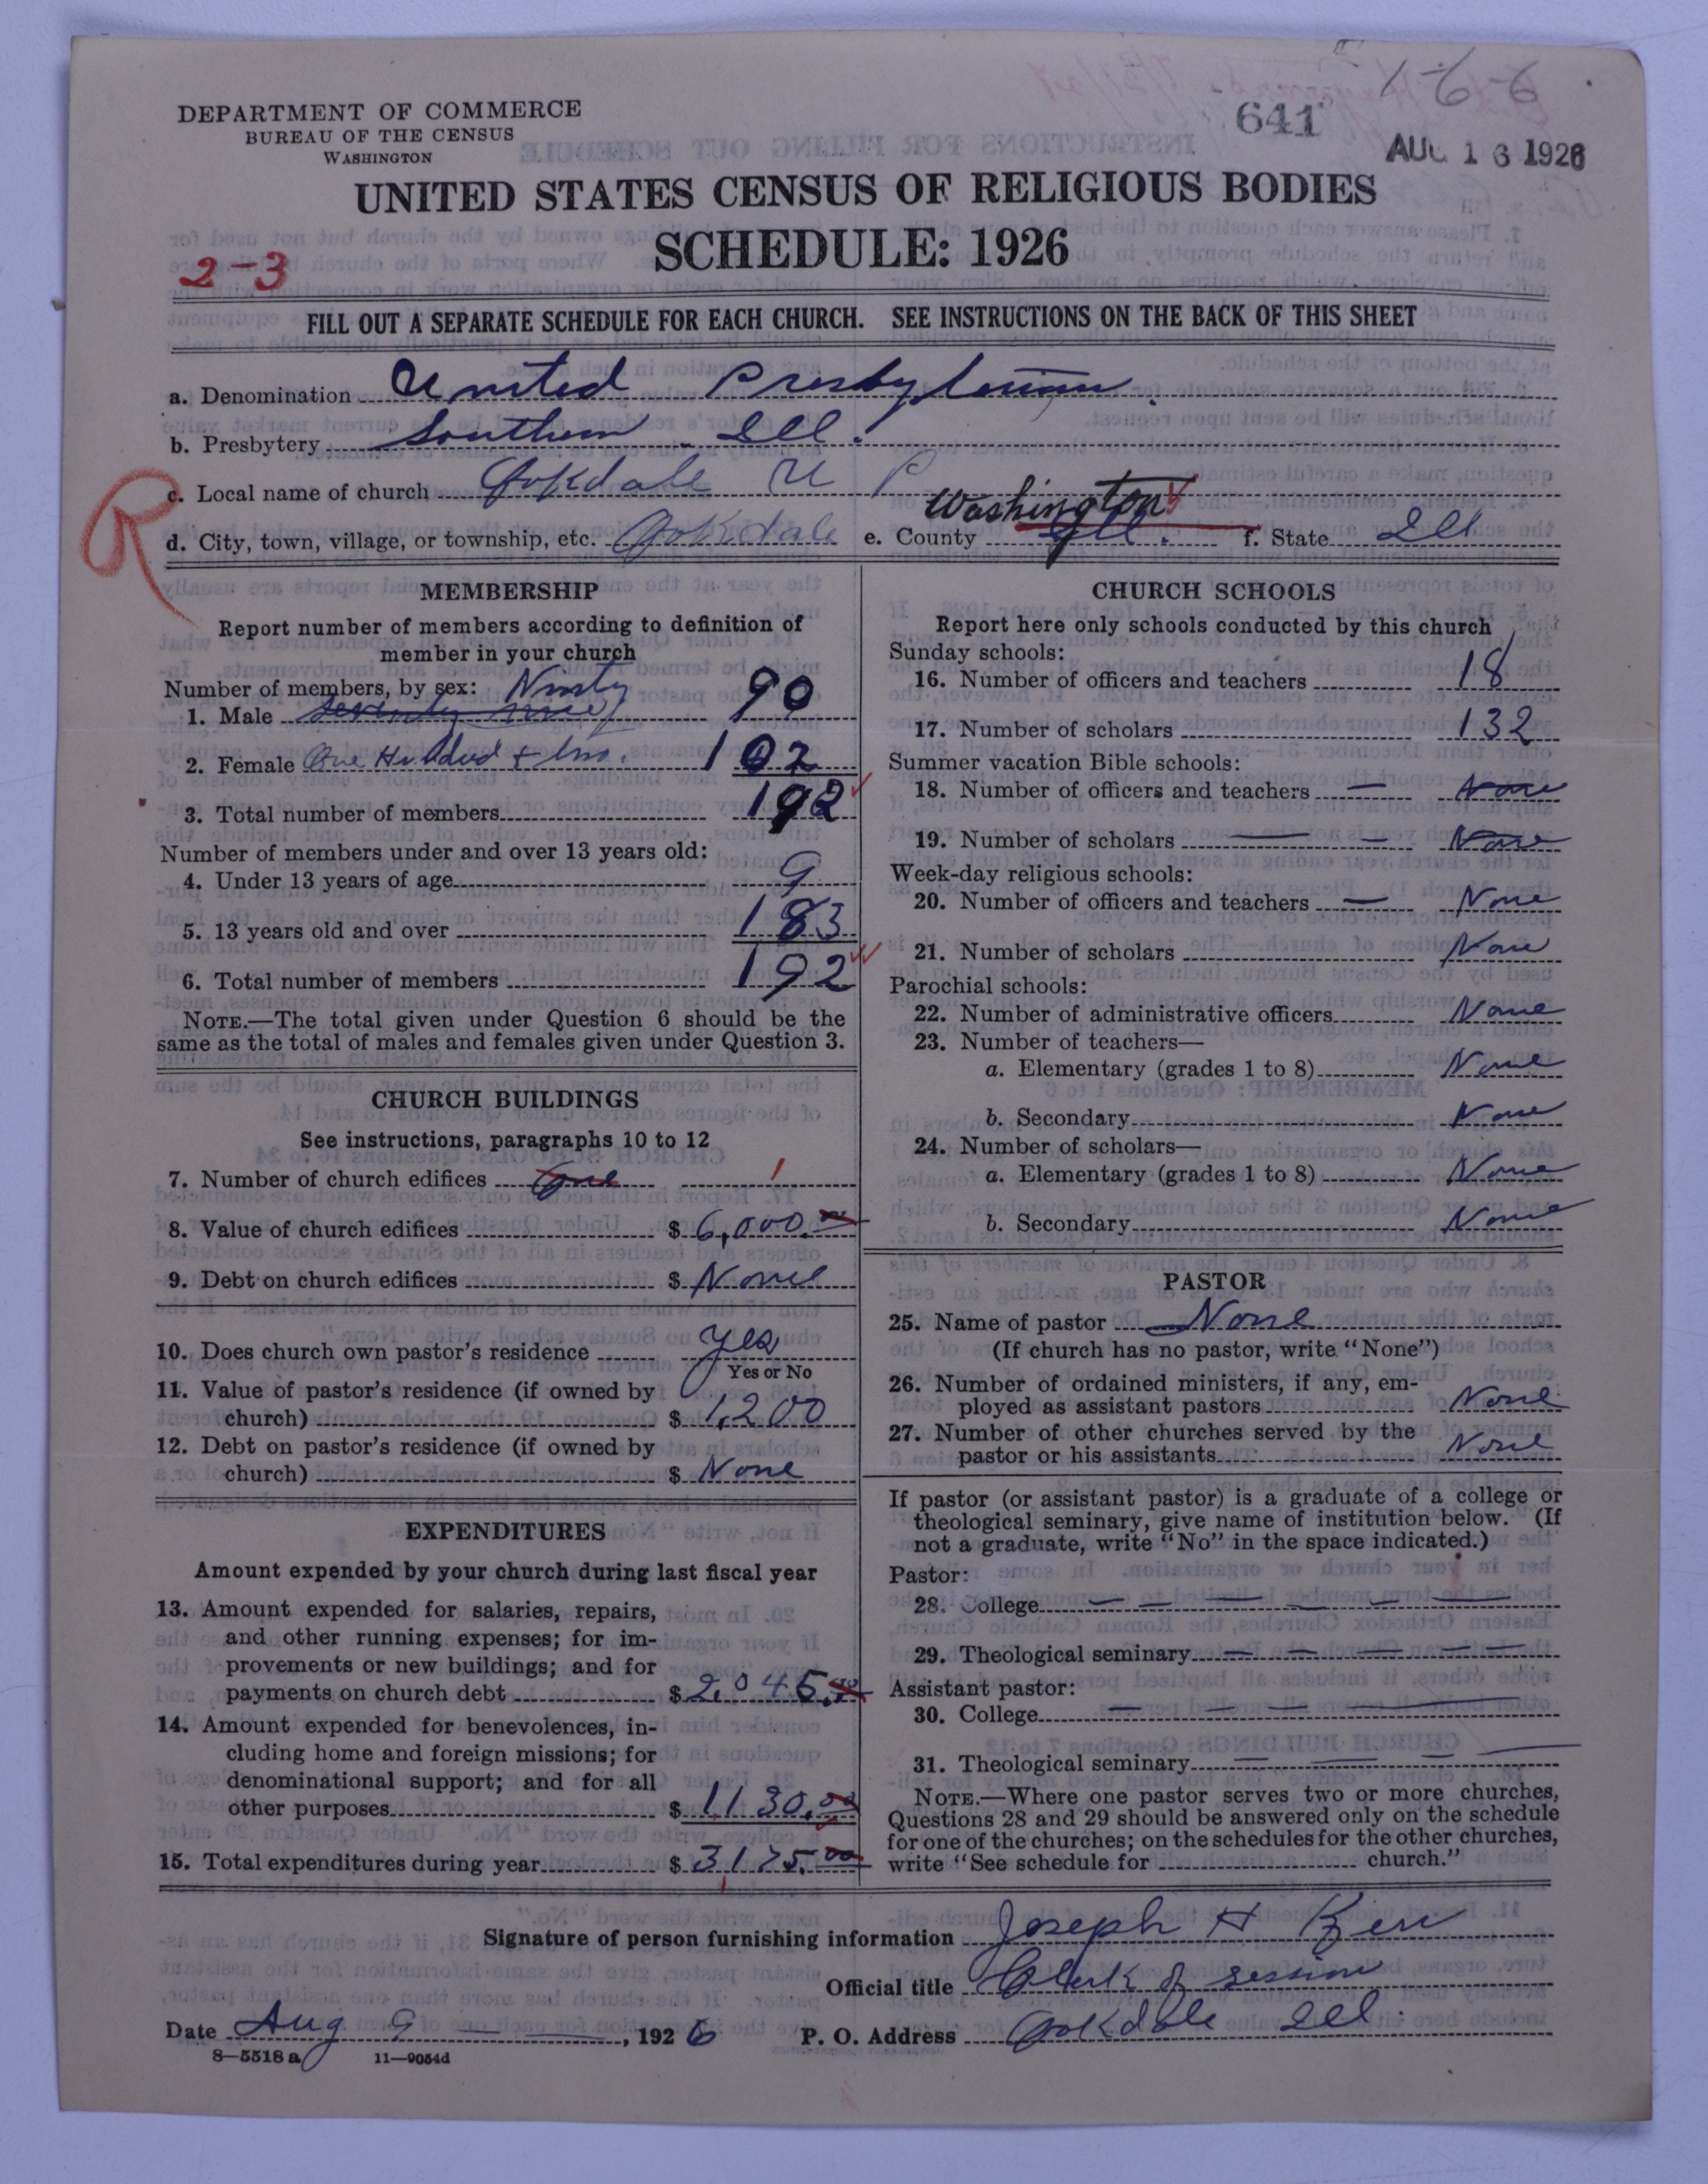 1-6-6
641
AUG 16 1926
DEPARTMENT OF COMMERCE
BUREAU OF THE CENSUS
WASHINGTON
UNITED STATES CENSUS OF RELIGIOUS BODIES
SCHEDULE: 1926
2-3
FILL OUT A SEPARATE SCHEDULE FOR EACH CHURCH. SEE INSTRUCTIONS ON THE BACK OF THIS SHEET
a. Denomination United Presbyterian.
b. Presbytery Southern Ill.
R
c. Local name of church Oakdale U P
Washington
d. City, town, village, or township, etc. Oakdale e. County Ill. f. State Ill
MEMBERSHIP
Report number of members according to definition of
member in your church
Number of members, by sex: Ninty
1. Male seventy nine 90
2. Female One Hundred + two. 102
3. Total number of members 192
Number of members under and over 13 years old:
4. Under 13 years of age 9
5. 13 years old and over 183
6. Total number of members 192
NOTE.—The total given under Question 6 should be the
same as the total of males and females given under Question 3.
CHURCH BUILDINGS
See instructions, paragraphs 10 to 12
7. Number of church edifices One 1
8. Value of church edifices $ 6,000.00
9. Debt on church edifices $ None
10. Does church own pastor's residence Yes
Yes or No
11. Value of pastor's residence (if owned by
church) $ 1,200
12. Debt on pastor's residence (if owned by
church) $ None
EXPENDITURES
Amount expended by your church during last fiscal year
13. Amount expended for salaries, repairs,
and other running expenses; for im-
provements or new buildings; and for
payments on church debt $ 2,045.
14. Amount expended for benevolences, in-
cluding home and foreign missions; for
denominational support; and for all
other purposes $ 1130.00
15. Total expenditures during year $ 3175.00
CHURCH SCHOOLS
Report here only schools conducted by this church
Sunday schools:
16. Number of officers and teachers 18
17. Number of scholars 132
Summer vacation Bible schools:
18. Number of officers and teachers — None
19. Number of scholars — None
Week-day religious schools:
20. Number of officers and teachers — None
21. Number of scholars None
Parochial schools:
22. Number of administrative officers None
23. Number of teachers—
a. Elementary (grades 1 to 8) None
b. Secondary None
24. Number of scholars—
a. Elementary (grades 1 to 8) None
b. Secondary None
PASTOR
25. Name of pastor None
(If church has no pastor, write "None")
26. Number of ordained ministers, if any, em-
ployed as assistant pastors None
27. Number of other churches served by the
pastor or his assistants None
If pastor (or assistant pastor) is a graduate of a college or
theological seminary, give name of institution below. (If
not a graduate, write "No" in the space indicated.)
Pastor:
28. College — — — — — —
29. Theological seminary — — — — —
Assistant pastor:
30. College — — — —
31. Theological seminary — — — —
NOTE.—Where one pastor serves two or more churches,
Questions 28 and 29 should be answered only on the schedule
for one of the churches; on the schedules for the other churches,
write "See schedule for church."
Signature of person furnishing information Joseph H Kerr
Official title Clerk of session
Date Aug 9, 1926 P. O. Address Oakdale Ill.
8—5518 a 11—9054d